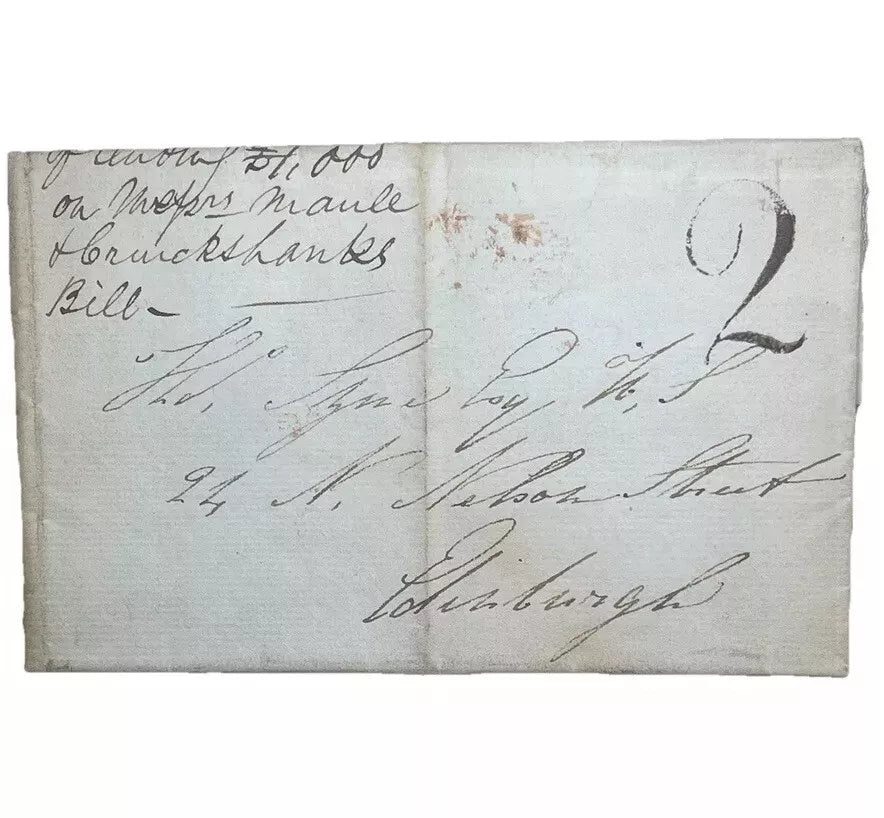 of £1,000
on Messrs Maule
& Cruickshanks
Bill —
2
Syme Esq W. S
24 N. Nelson Street
Edinburgh